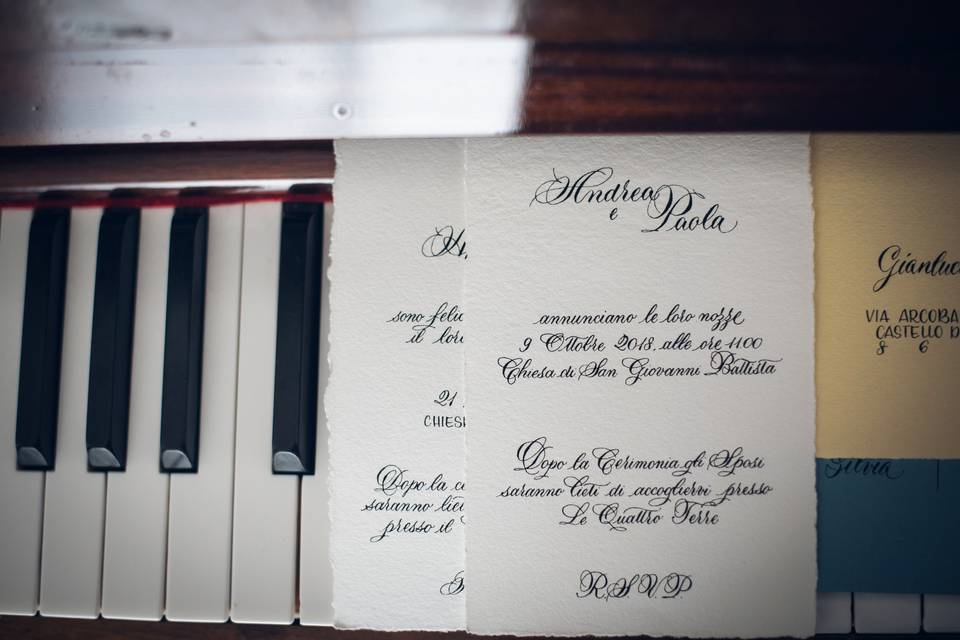 Andrea
e
Paola
annunciano le loro nozze
9 Ottobre 2018 alle ore 1100
Chiesa di San Giovanni Battista
Dopo la Cerimonia gli Sposi
saranno lieti di accogliervi presso
Le Quattro Terre
R.S.V.P.
sono felic
il lor
21
CHIES
Dopo la c
saranno liei
presso il
Gianluc
VIA ARCOBA
CASTELLO D
8 6
Silvia